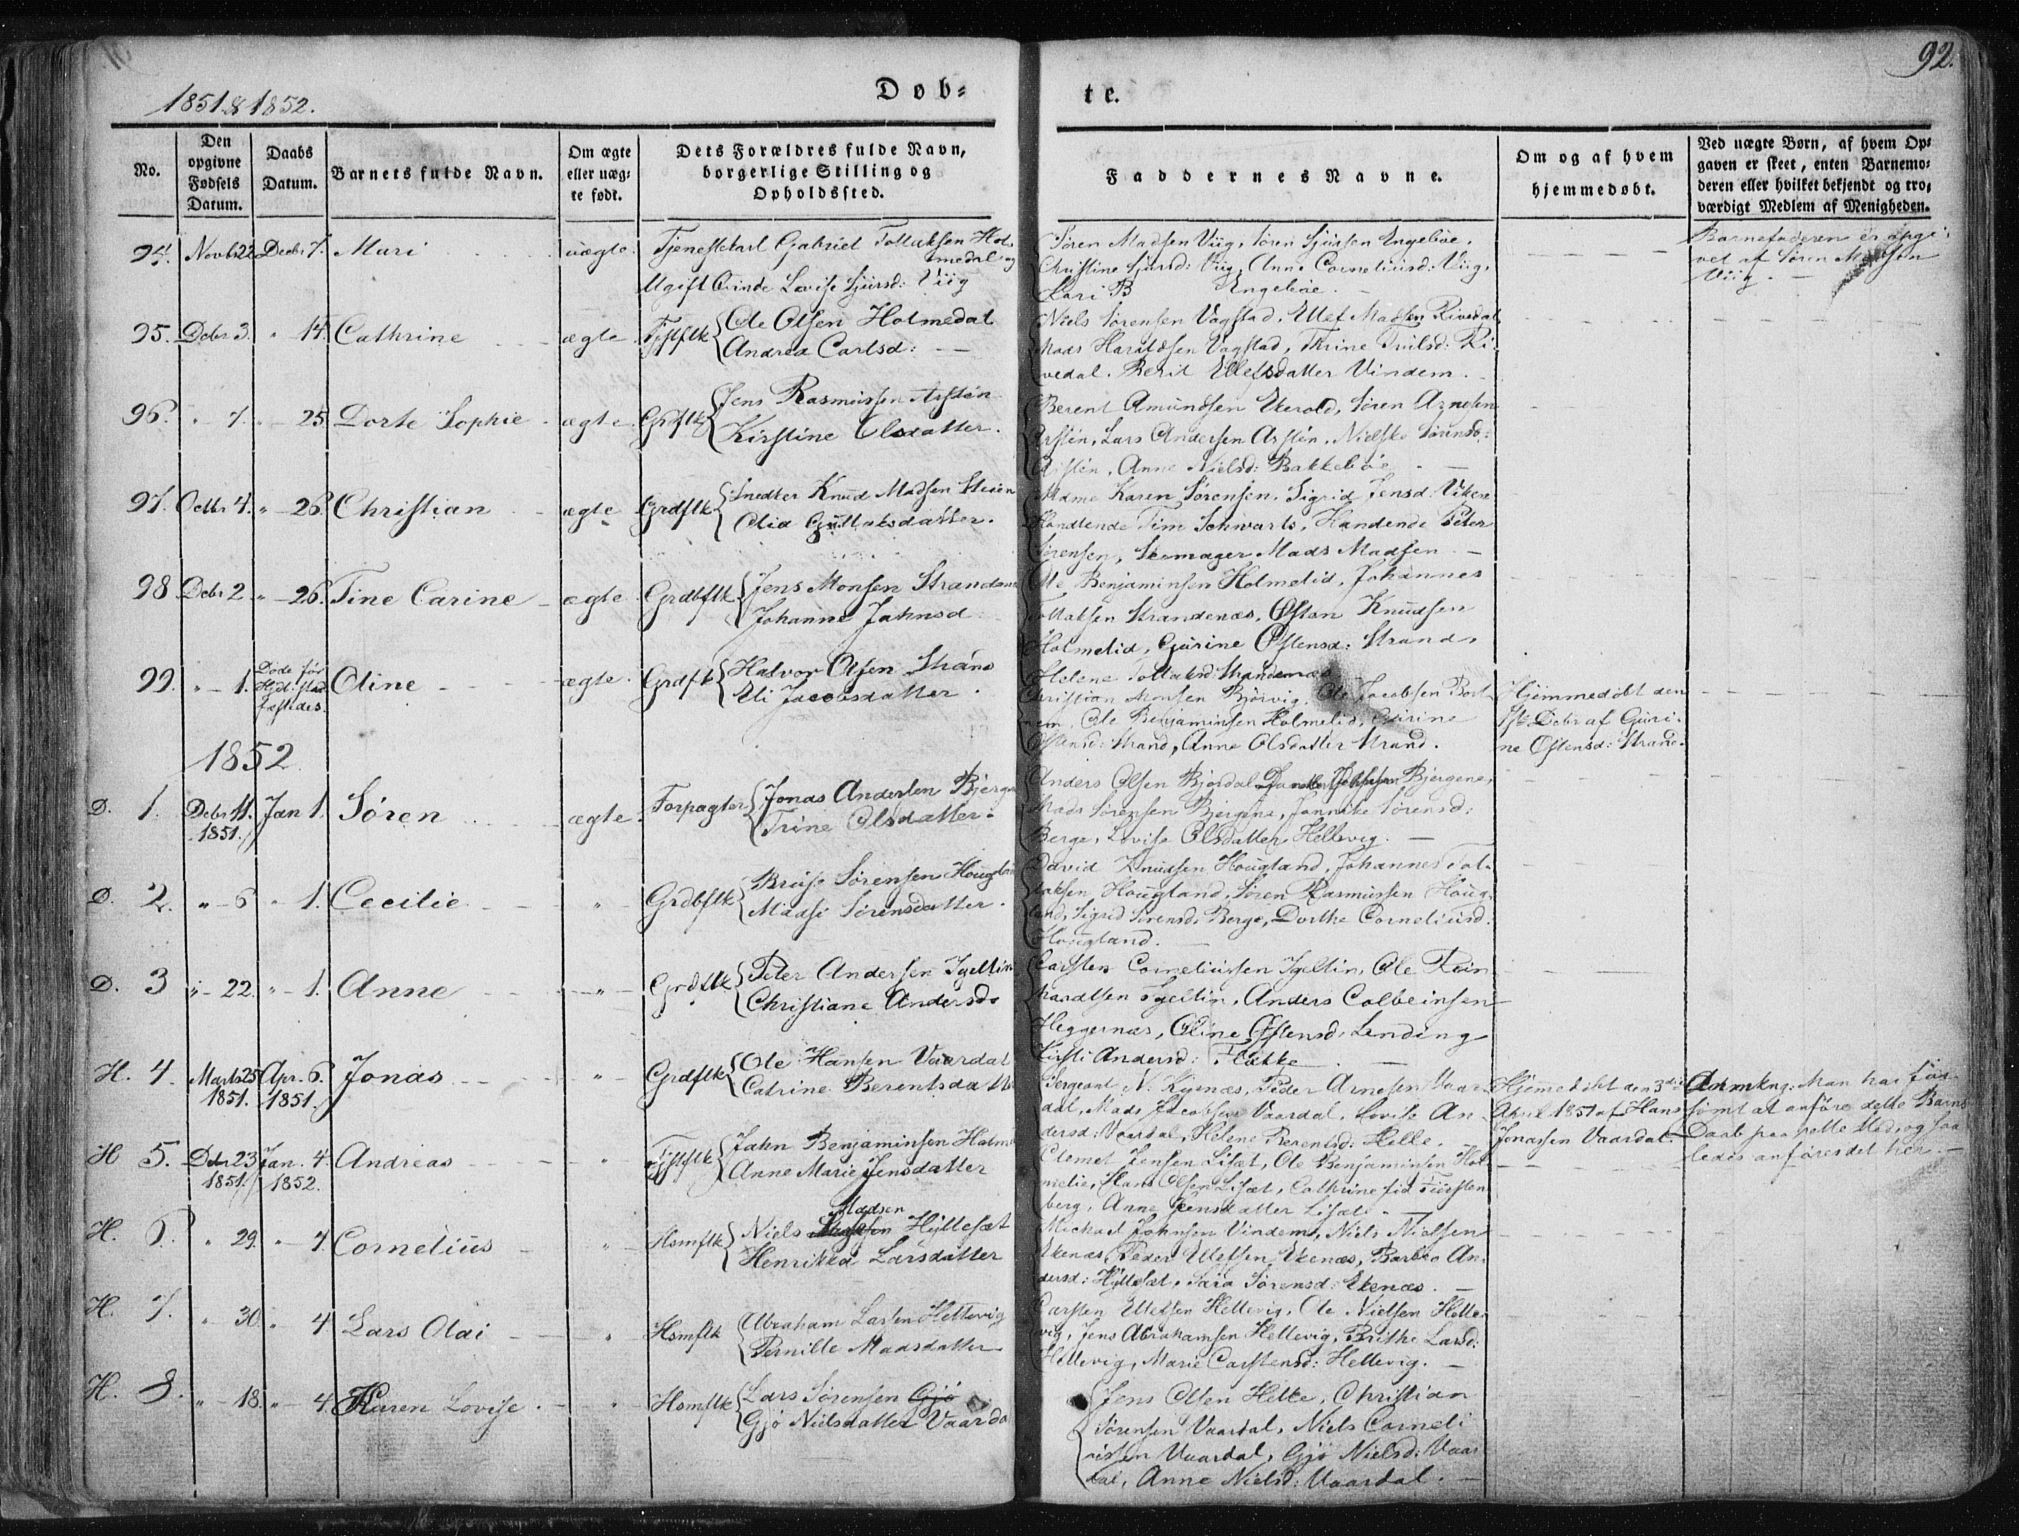 92.
1851 & 1852.
Døb-
te.
No.
Den opgivne Fødsels Datum.
Daabs Datum.
Barnets fulde Navn.
Om ægte eller uæg-te født.
Dets Forældres fulde Navn, borgerlige Stilling og Opholdssted.
Faddernes Navne.
Om og af hvem hjemmedøbt.
Ved uægte Børn, af hvem Op-gaven er skeet, enten Barnemo-deren eller hvilket bekjendt og tro-værdigt Medlem af Menigheden.
94. Novbr 22 Decbr 7. Mari uægte. Tjenestekarl Gabriel Tollaksen Hol-
medal og
Ugift Qvinde Lovise Sjursd: Viig
Søren Madsen Viig, Søren Sjursen Engebøe,
Christine Sjursd: Viig, Anne Corneliusd: Viig,
Kari B Engebøe.
Barnefaderen er opgi-
vet af Søren Madsen
Viig.
95. Debr 3. " 14. Cathrine ægte Ole Olsen Holmedal
Andrea Carlsd:
Niels Sørensen Vagstad, Ellef Madsen Rivedal
Mads Haraldsen Vagstad, Thrine
vedal. Berit Ellefsdatter Vindem.
96. " 7. " 25 Dorte Sophie ægte Jens Rasmussen
Kirstine Olsdatter.
Berent Amundsen Ekerold, Søren Arnesen
Lars Andersen
Anne Nielsd: Bakkebøe
97. Octbr 4. " 26. Christian ægte Grdflk Snedker Knud Madsen Steien
Olia Gullaksdatter.
Mdme Karen Sørensen, Sigrid Jensd: Viken
Handlende Tim Schwarts, Handlende Peter
Sørensen, Skomager Mads Madsen
98 Debr 2 " 26. Tine Carine ægte Grdbflk Jens Monsen Strandenæs
Johanne Jahnsd
Ole Benjaminsen Holmelid, Johannes
Tollaksen Strandenæs, Østen Knudsen
Holmelid, Gurine Østensd: Strand,
Helene Tollaksd: Strandenæs
99. " 1. Døde før
Oline ægte. Grdflk Halvor Olsen Strand
Eli Jacobsdatter.
Christian Monsen Bjørvig, Ole Jacobsen Bort-
nem, Ole Benjaminsen Holmelid, Gurine
Østensd: Strand, Anne Olsdatter Strand.
Hjemmedøbt den
Debr af Guri-
ne Østensd: Strand.
1852
D. 1. Debr 11. 1851. Jan 1. Søren ægte. Forpagter Jonas Andersen Bjergene
Trine Olsdatter.
Anders Olsen Bjordal, Bjergene,
Mads Sørensen Bjergene, Jannike Sørensd:
Berge, Lovise Olsdatter Hellevig.
D. 2. " 6 " 1. Cecilie " Grdbflk Sørensen Hougland
Madsi Sørensdatter.
David Knudsen Hougland, Johannes Tol-
laksen Hougland, Søren Rasmussen Houg-
land, Sigrid Sørensd: Berge, Dorthe Corneliusd.
Hougland.
D. 3 " 22. " 1. Anne " Grdflk Peter Andersen Igeltin
Christiane Andersd
Carsten Corneliussen Igeltin, Ole Rein
hardtsen Igeltin, Anders Colbeinsen
Heggernæs, Oline Østensd: Lending
Kirsti Andersd: Flekke
H. 4. Marts 25 1851. Apr. 6. 1851. Jonas " Grdflk Ole Hansen Vaardal
Catrine Berentsdatter
Sergeant N. Peder Arnesen Vaar
dal, Mads Jacobsen Vaardal, Lovise An
dersd: Vaardal, Helene Berentsd: Helle.
Hjemedøbt den 3die
April 1851 af Hans
Jonassen Vaardal.
Anmkng: Man har for-
sømt at anføre dette Barns
Daab paa rette Sted, og saa-
ledes anføres det her.
H 5. Debr 23 1851. Jan. 4. 1852. Andreas " Jahn Benjaminsen
Anne Marie Jensdatter
Clemet Jensen Lisæt, Ole Benjaminsen Hol-
melid, Hans Olsen Lisæt, Cathrine
berg, Anne Jensdatter Lisæt.
H. 6. " 29. " 4. Cornelius " Hsmflk Niels Madsen Hyllesæt
Henrikka Larsdatter
Michael Johnsen Vindem, Niels Nielsen
Ekenæs, Peder Ellefsen Ekenæs, Barbra An-
dersd: Hyllesæt, Sara Sørensd: Ekenæs.
H. 7. " 30. " 4. Lars Olai " Hsmflk Abraham Larsen Hellevig
Pernille Madsdatter
Carsten Ellefsen Hellevig, Ole Nielsen Helle-
vig, Jens Abrahamsen Hellevig, Brithe Larsd:
Hellevig, Marie Carstensd: Hellevig.
H. 8. " 18. " 4. Karen Lovise. " Hsmflk Lars Sørensen Gjø
Gjø Nielsdatter Vaardal
Jens Olsen Helle, Christian
Sørensen Vaardal, Niels Corneli
ussen Vaardal, Gjø Nielsd: Vaar
dal, Anne Nielsd: Vaardal.